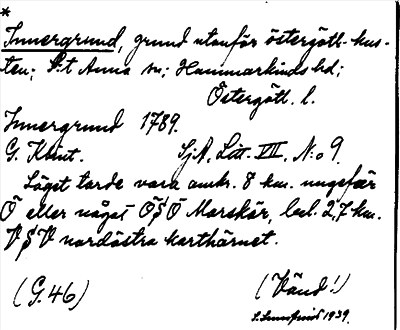 *
Innergrund, grund utanför östergötl-kus-
ten; S:t Anna sn; Hammarkinds hd;
Östergötl. l.
Innergrund 1789.
G. Klint. SjA. Litt. VII. N:o 9.
Läget torde vara omkr. 8 km. ungefär
Ö eller något ÖSÖ Marskär, bel. 2,7 km.
VSV nordöstra karthörnet.
(G.46) (Vänd!)
1939.